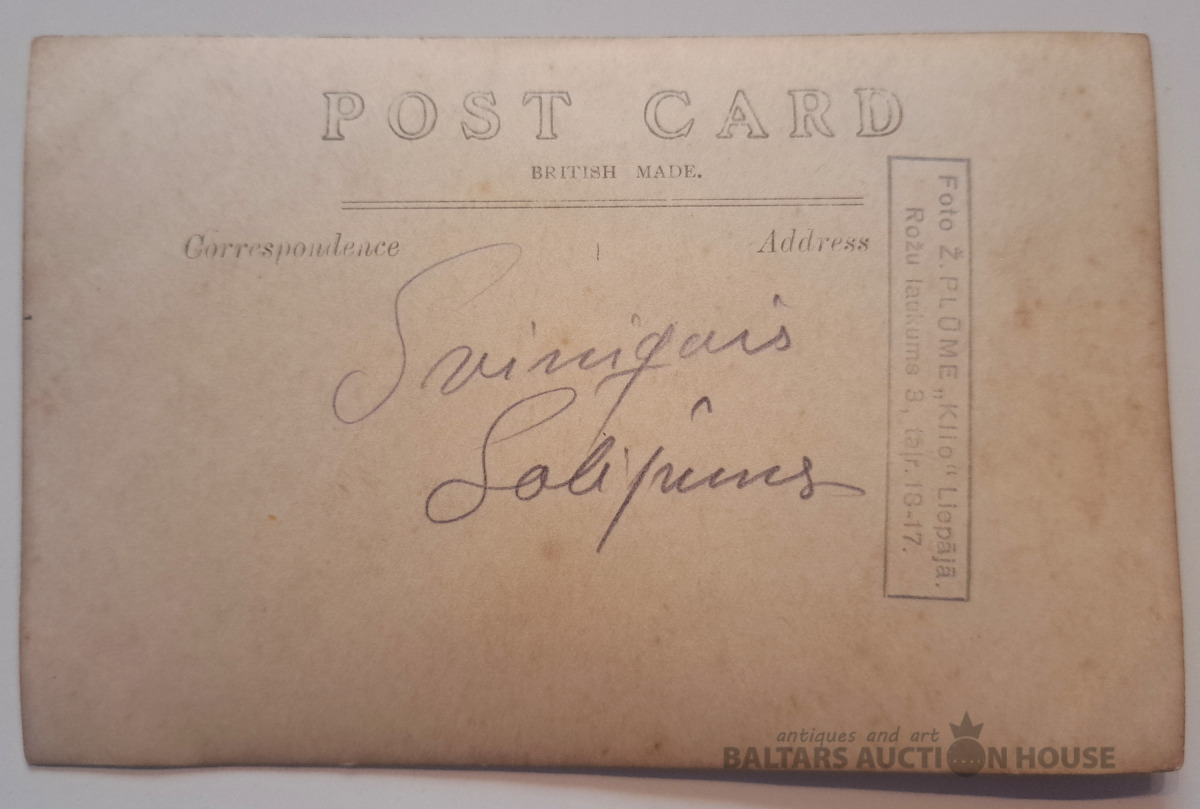 POST CARD
BRITISH MADE.
Correspondence
Address
Svinīgais
Foto Ž. PLŪME „Klio“ Liepājā.
Rožu laukums 3, tāļr. 18-17.
antiques and art
BALTARS AUCTION HOUSE